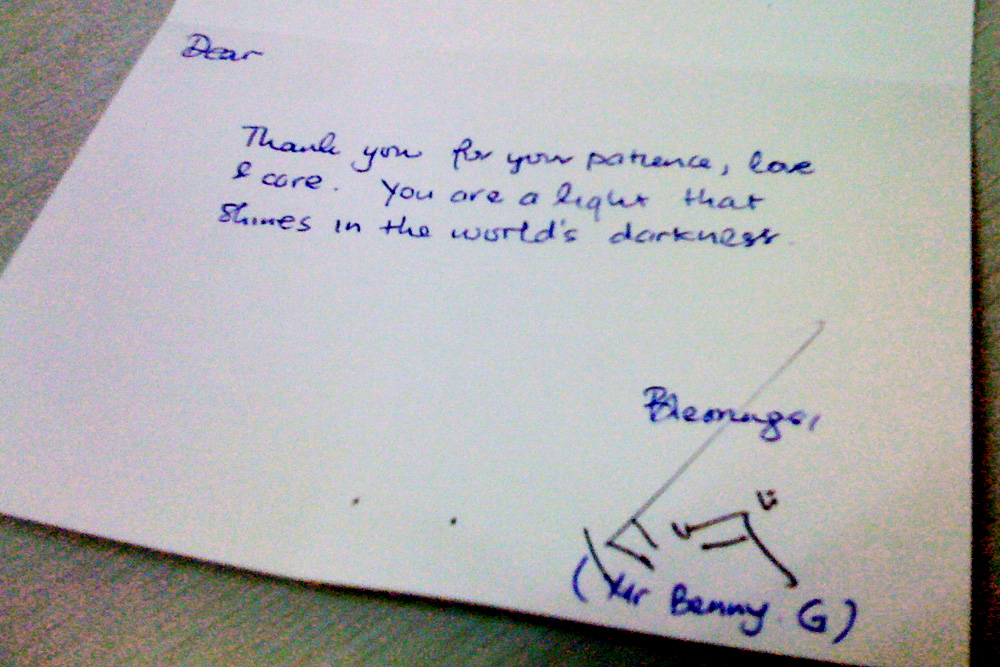 Dear
Thank you for your patience, love
& care. You are a light that
shines in the world's darkness.
Blessings,
(Mr Benny G)